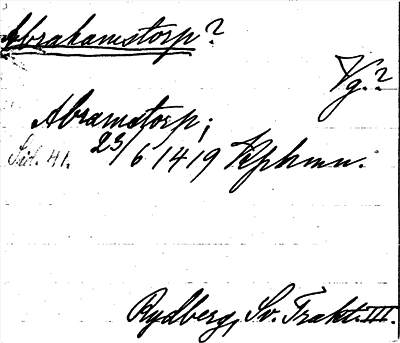 Abrahamstorp?
Vg.?
Abramstorp;
Sid. 41. 23/6 1419 Kphmn.
Rydberg, Sv. Trakt. III.